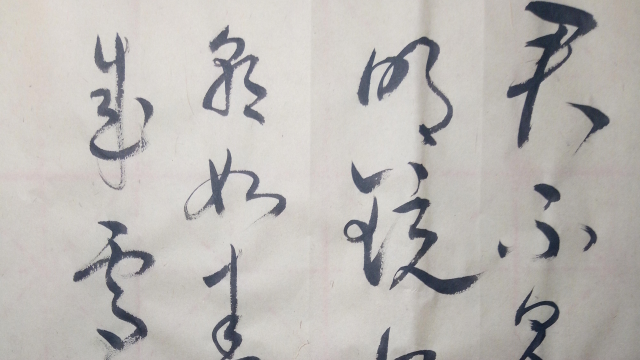 君不見
明鏡
朝如青
成雪